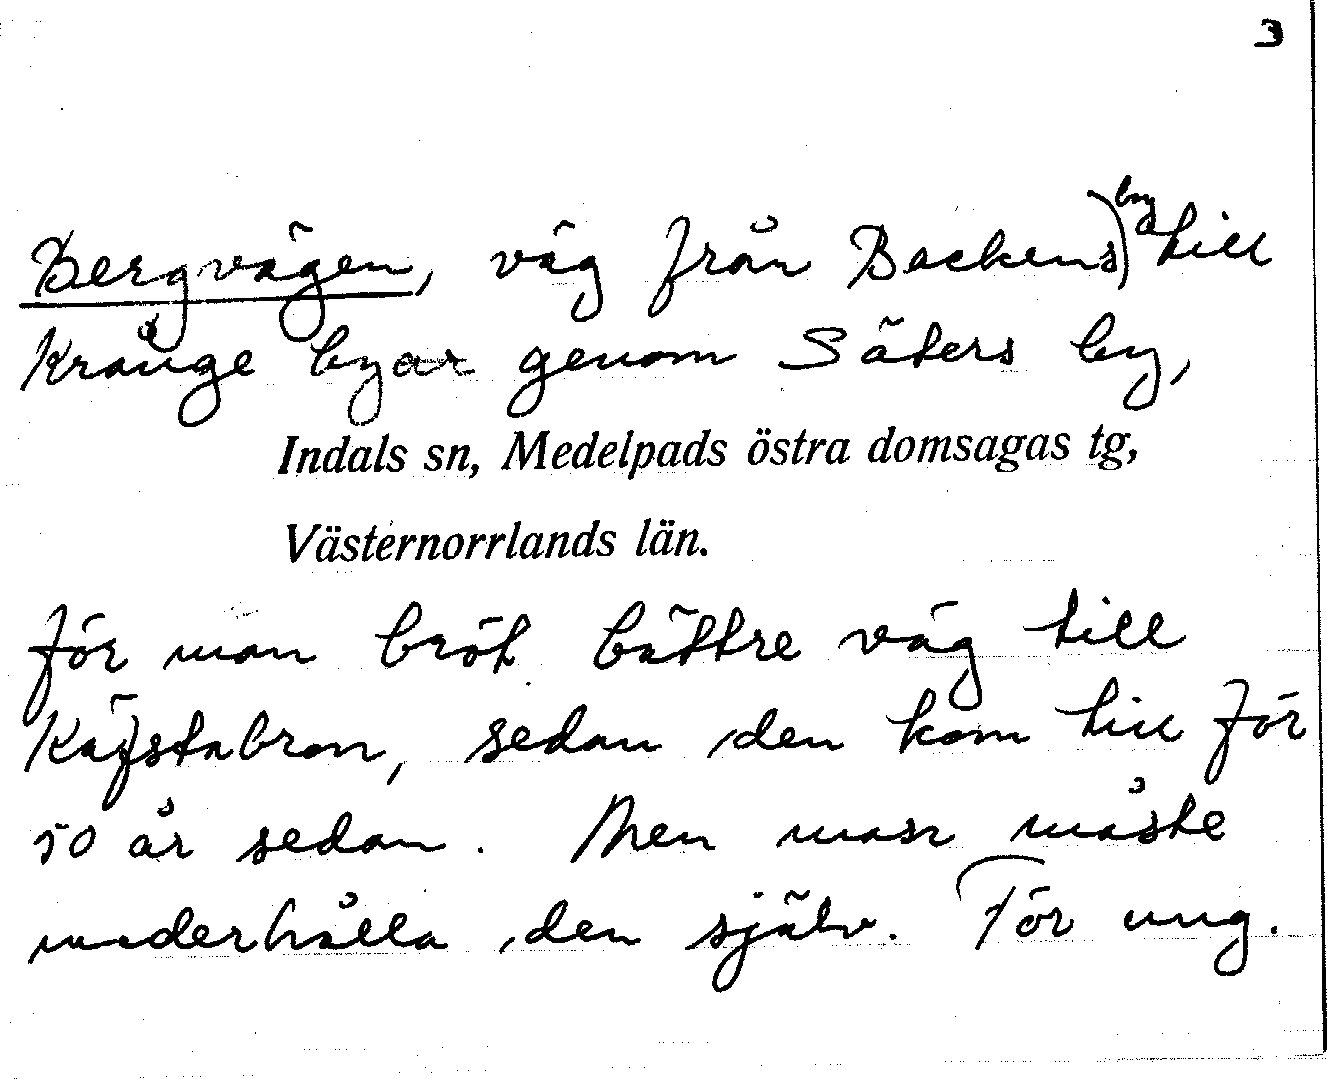 3
Bergvägen, väg från Backens) by till
Krånge byar genom Säters by,
Indals sn, Medelpads östra domsagas tg,
Västernorrlands län.
för man bröt bättre väg till
Käfstabron, sedan den kom till för
50 år sedan. Men man måste
underhålla den själv. För ung.